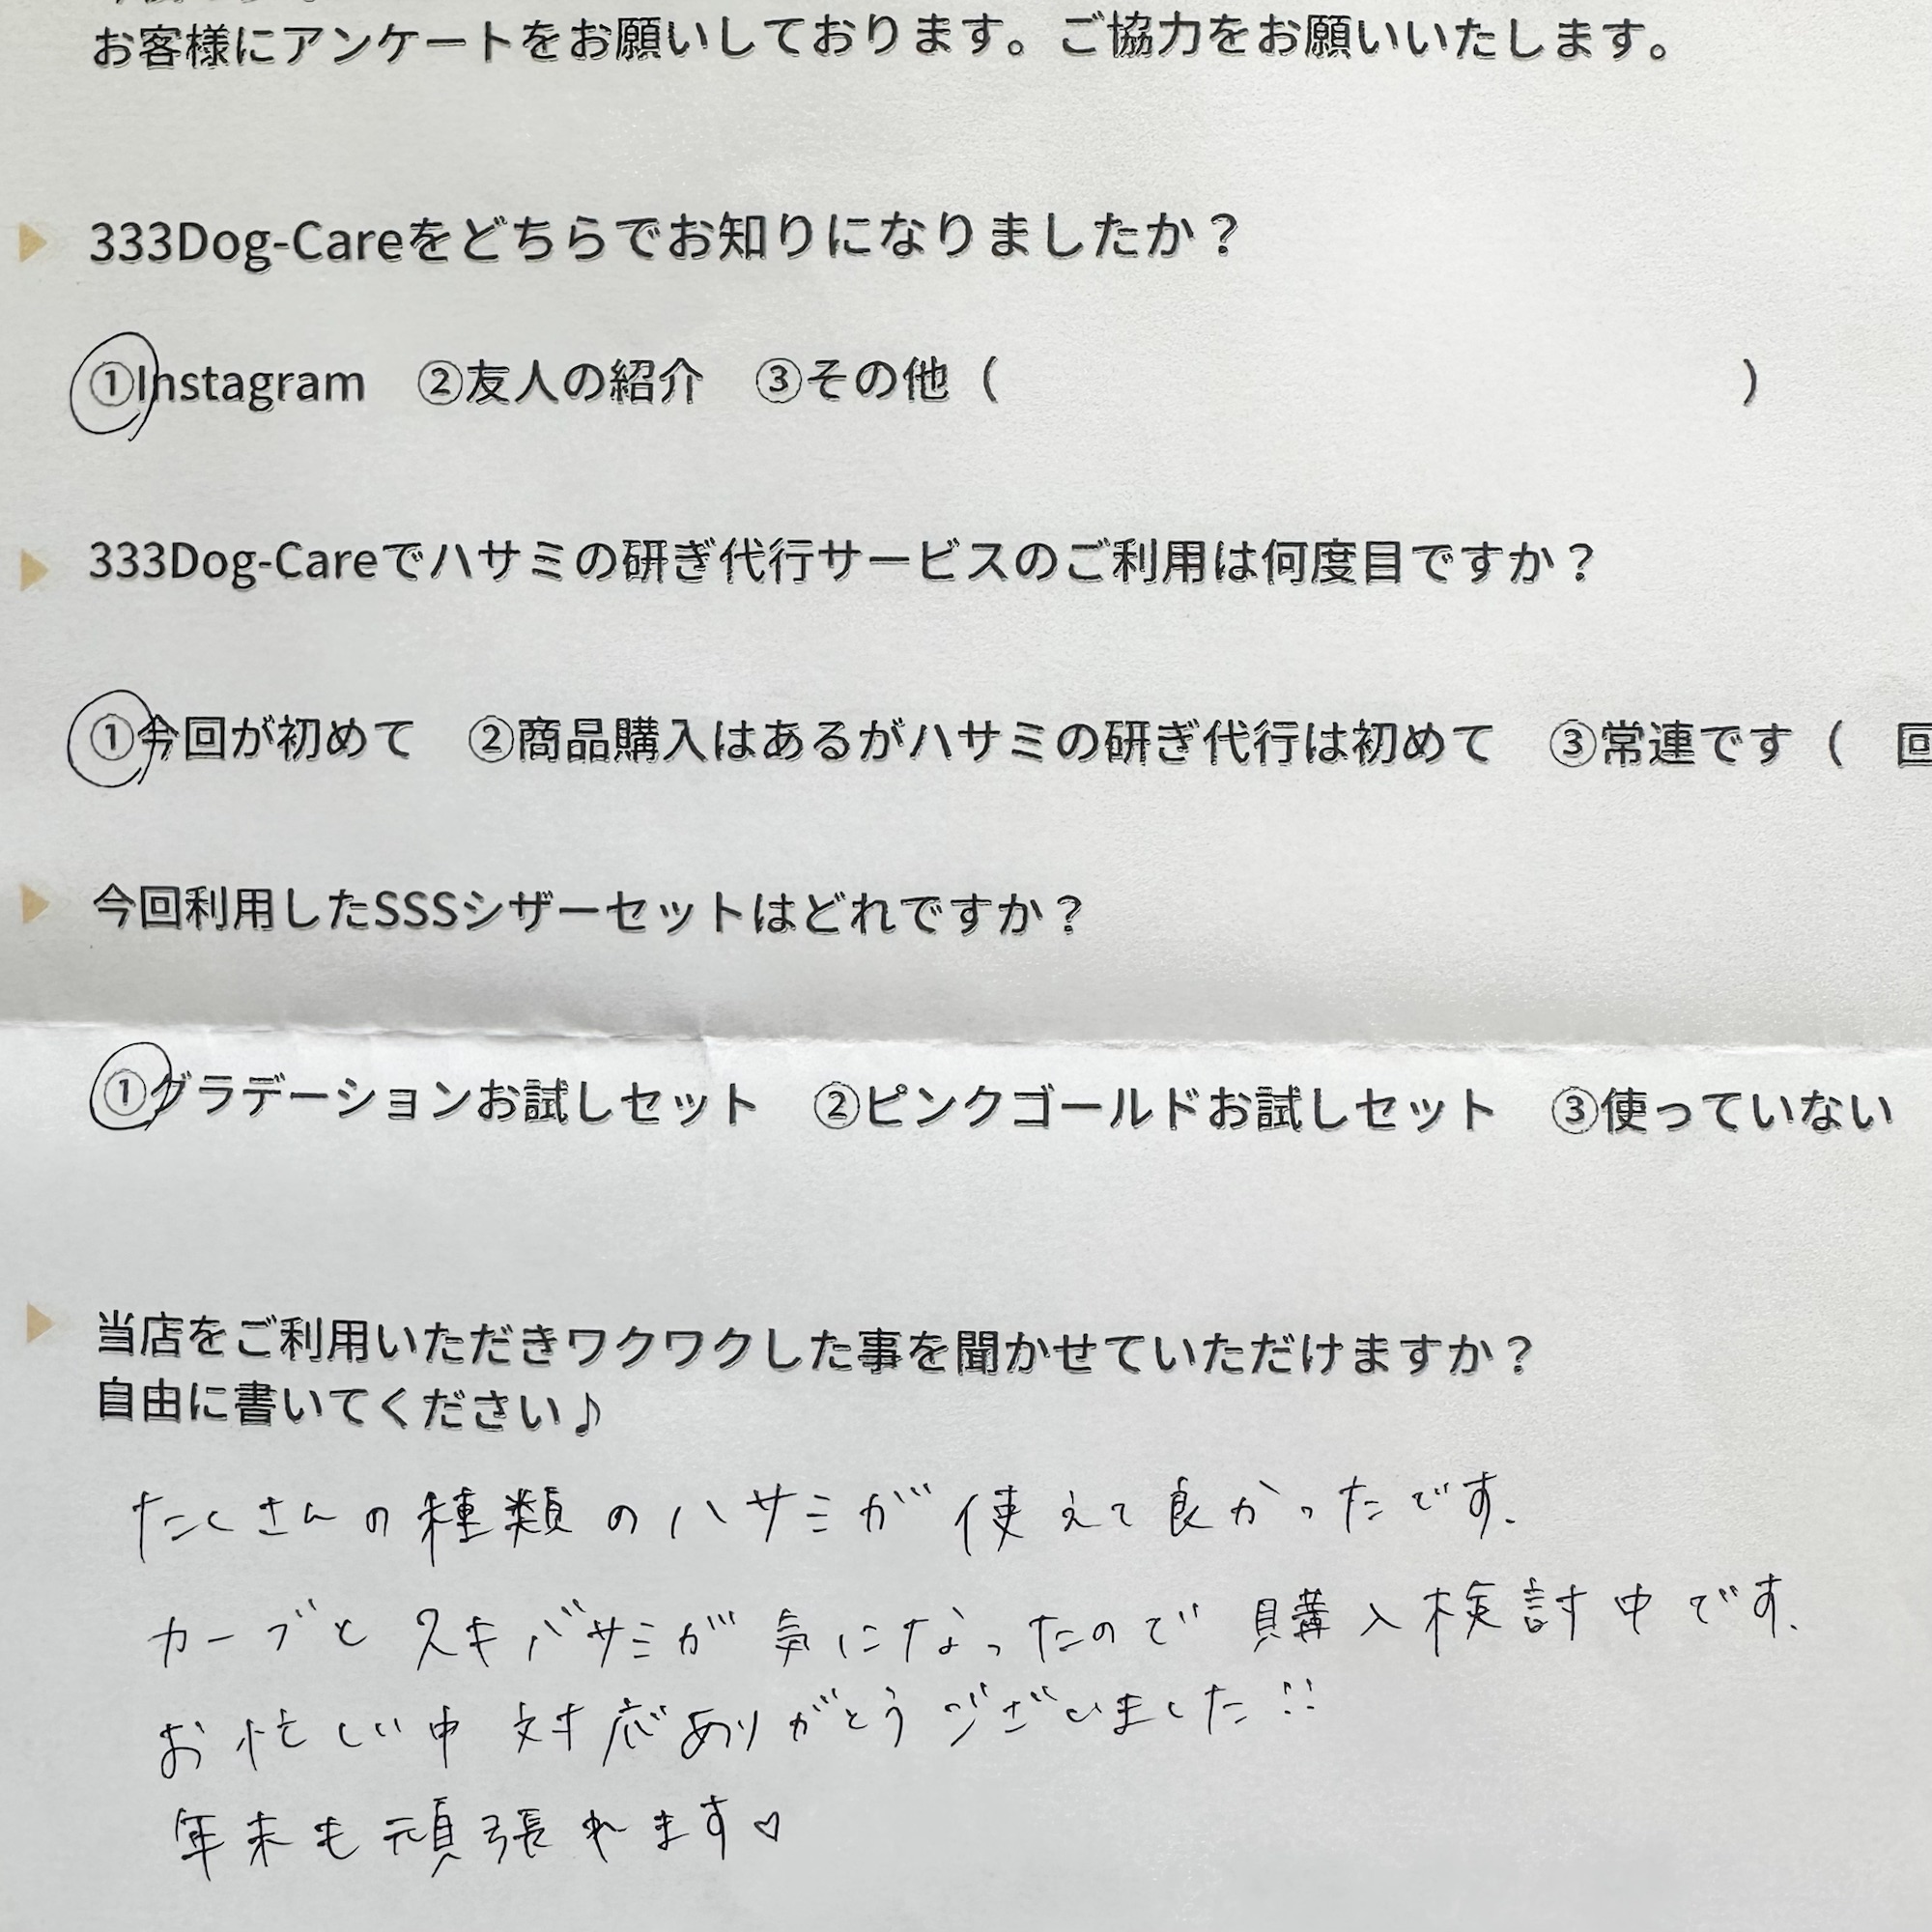 お客様にアンケートをお願いしております。ご協力をお願いいたします。
333Dog-Careをどちらでお知りになりましたか？
①Instagram　②友人の紹介　③その他（　　　　　　　　　　　　　　　）
333Dog-Careでハサミの研ぎ代行サービスのご利用は何度目ですか？
①今回が初めて　②商品購入はあるがハサミの研ぎ代行は初めて　③常連です（　回
今回利用したSSSシザーセットはどれですか？
①グラデーションお試しセット　②ピンクゴールドお試しセット　③使っていない
当店をご利用いただきワクワクした事を聞かせていただけますか？
自由に書いてください♪
たくさんの種類のハサミが使えて良かったです.
カーブとスキバサミが気になったので購入検討中です.
お忙しい中対応ありがとうございました!!
年末も頑張れます♡